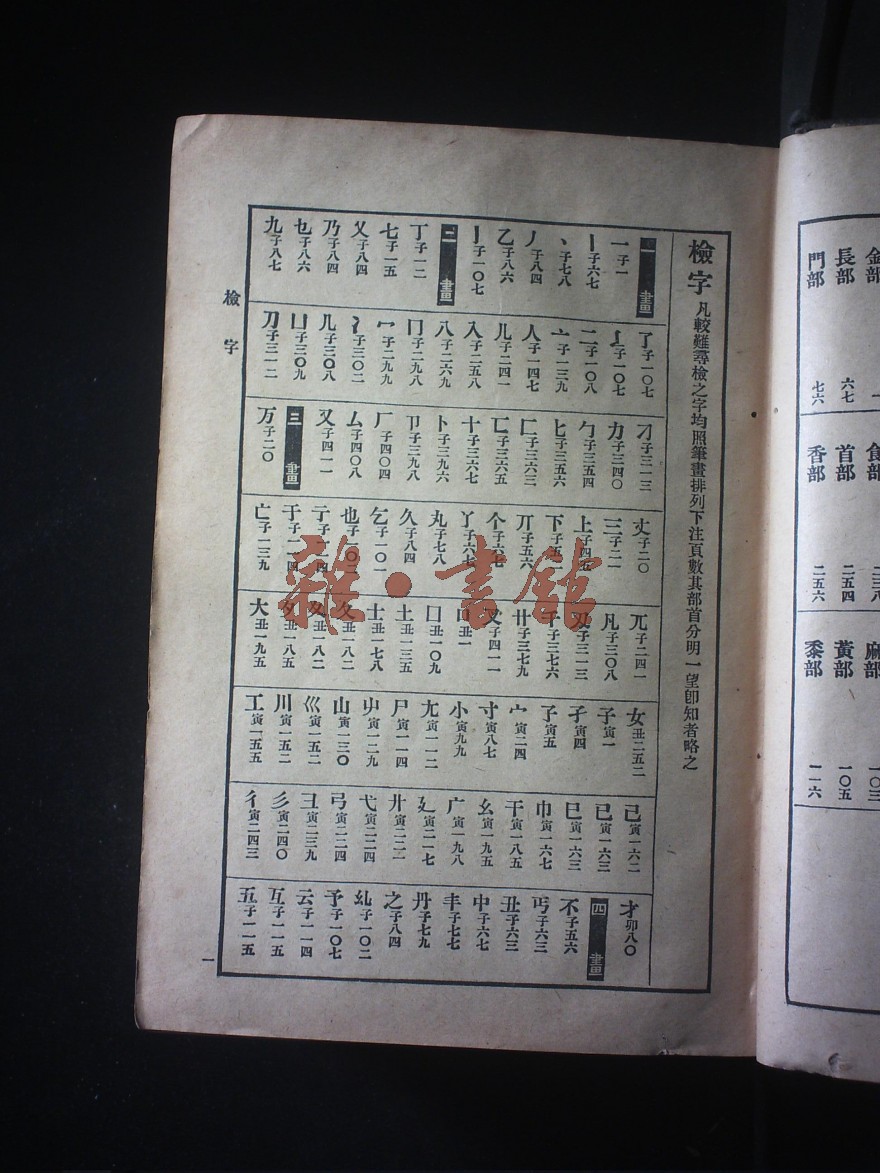 檢字 凡較難尋檢之字均照筆畫排列下注頁數其部首分明一望卽知者略之
一畫
一子一
丨子六七
丶子七八
丿子八四
乙子八六
亅子一〇七
二畫
丁子一二
七子一五
乂子八四
乃子八四
乜子八六
九子八七
了子一〇七
子一〇七
二子一〇八
亠子一三九
人子一四七
儿子二四一
入子二五八
八子二六九
冂子二九八
冖子二九九
冫子三〇二
几子三〇八
凵子三〇九
刀子三一二
刁子三一三
力子三四〇
勹子三五四
匕子三五六
匚子三六三
匸子三六五
十子三六七
卜子三九六
卩子三九八
厂子四〇四
厶子四〇八
又子四一一
三畫
万子二〇
丈子二〇
三子二一
上子四五
下子五一
丌子五六
个子六七
丫子六七
丸子七八
久子八四
乞子一〇一
也子一〇二
亍子一一四
于子一一四
亡子一三九
兀子二四一
凡子三〇八
刄子三一三
千子三七六
廿子三七九
叉子四一一
口丑一
囗丑一〇九
土丑一三五
士丑一七八
夂丑一八二
夊丑一八二
夕丑一八五
大丑一九五
女丑二五二
子寅一
孑寅四
孓寅五
宀寅二四
寸寅八七
小寅九九
尢寅一一二
尸寅一一四
屮寅一二九
山寅一三〇
巛寅一五二
川寅一五二
工寅一五五
己寅一六二
已寅一六三
巳寅一六三
巾寅一六七
干寅一八五
幺寅一九五
广寅一九八
廴寅二一七
廾寅二二二
弋寅二二四
弓寅二二四
彐寅二三九
彡寅二四〇
彳寅二四三
才卯八〇
四畫
不子五六
丐子六三
丑子六三
中子六七
丰子七七
丹子七九
之子八四
乣子一〇二
予子一〇七
云子一一四
互子一一五
五子一一五
檢字
一
金部
長部 六七
門部 七六
食部 二三八
首部 二五四
香部 二五六
麻部 一〇三
黃部 一〇五
黍部 一一六
雜·書館